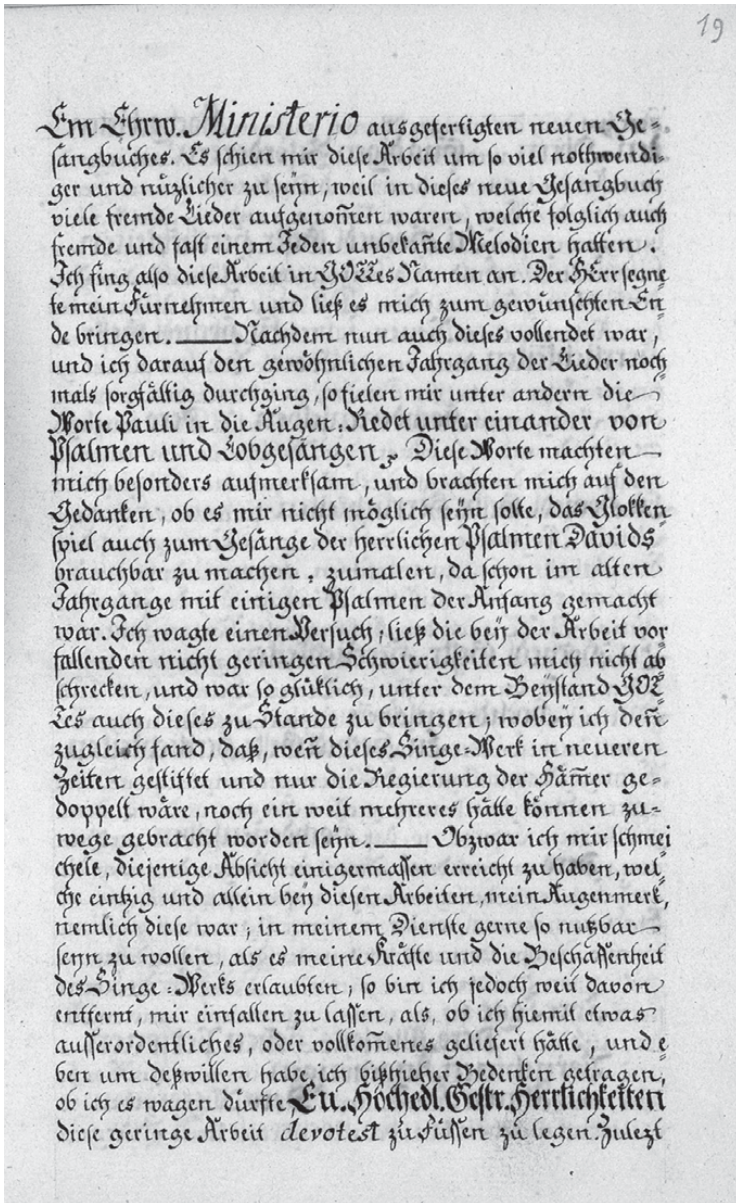 19
Em Ehrw. Ministerio ausgefertigten neuen Ge-
sangbuches. Es schien mir diese Arbeit um so viel nothwendi-
ger und nüzlicher zu seÿn, weil in dieses neue Gesangbuch
viele fremde Lieder aufgenom̃en waren, welche folglich auch
fremde und fast einem Jeden unbekañte Melodien hatten.
Ich fing also diese Arbeit in GOTTes Namen an. Der HErr segne-
te mein Fürnehmen und ließ es mich zum gewünschten En-
de bringen. —— Nachdem nun auch dieses vollendet war,
und ich darauf den gewöhnlichen Jahrgang der Lieder noch-
mals sorgfältig durchging, so fielen mir unter andern die
Worte Pauli in die Augen: Redet unter einander von
Psalmen und Lobgesängen. Diese Worte machten
mich besonders aufmerksam, und brachten mich auf den
Gedanken, ob es mir nicht möglich seÿn solte, das Glokken-
spiel auch zum Gesänge der herrlichen Psalmen Davids
brauchbar zu machen, zumalen, da schon im alten
Jahrgange mit einigen Psalmen der Anfang gemacht
war. Ich wagte einen Versuch, ließ die beÿ der Arbeit vor-
fallenden nicht geringen Schwierigkeiten mich nicht ab-
schrecken, und war so glüklich, unter dem Beÿstand GOT-
Tes auch dieses zu Stande zu bringen; wobeÿ ich deñ
zugleich fand, daß, weñ dieses Singe-Werk in neueren
Zeiten gestiftet und nur die Regierung der Häm̃er ge-
doppelt wäre, noch ein weit mehreres hätte können zu-
wege gebracht worden seÿn. —— Obzwar ich mir schmei-
chele, diejenige Absicht einigermassen erreicht zu haben, wel-
che eintzig und allein beÿ diesen Arbeiten, mein Augenmerk,
nemlich diese war, in meinem Dienste gerne so nutzbar
seÿn zu wollen, als es meine Kräfte und die Beschaffenheit
des Singe-Werks erlaubten; so bin ich jedoch weit davon
entfernt, mir einfallen zu lassen, als, ob ich hiemit etwas
ausserordentliches, oder vollkom̃enes geliefert hätte, und e-
ben um deßwillen habe ich bißhieher Bedenken getragen,
ob ich es wagen dürfte Eu. Hochedl. Gestr. Herrlichkeiten
diese geringe Arbeit devotest zu Füssen zu legen. Zulezt